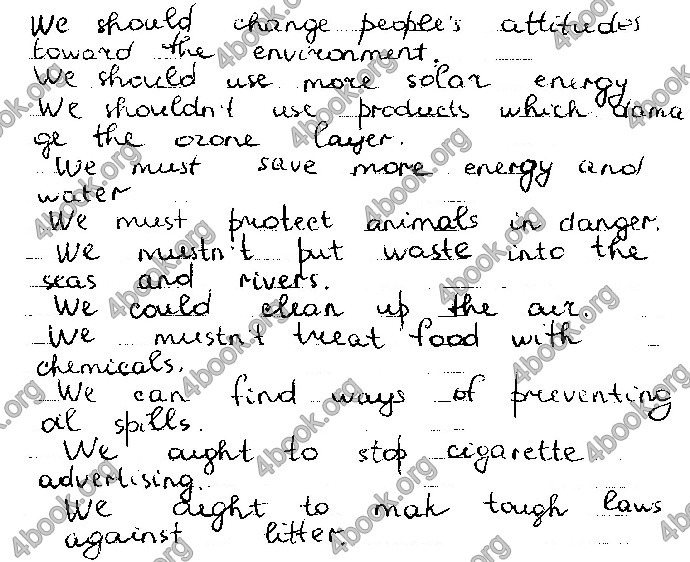 We should change people's attitudes
toward the environment.
We should use more solar energy
We shouldn't use products which dama
ge the ozone layer.
We must save more energy and
water
We must protect animals in danger.
We mustn't put waste into the
seas and rivers.
We could clean up the air.
We mustn't treat food with
chemicals.
We can find ways of preventing
oil spills.
We ought to stop cigarette
advertising.
We ought to mak tough laws
against litter.